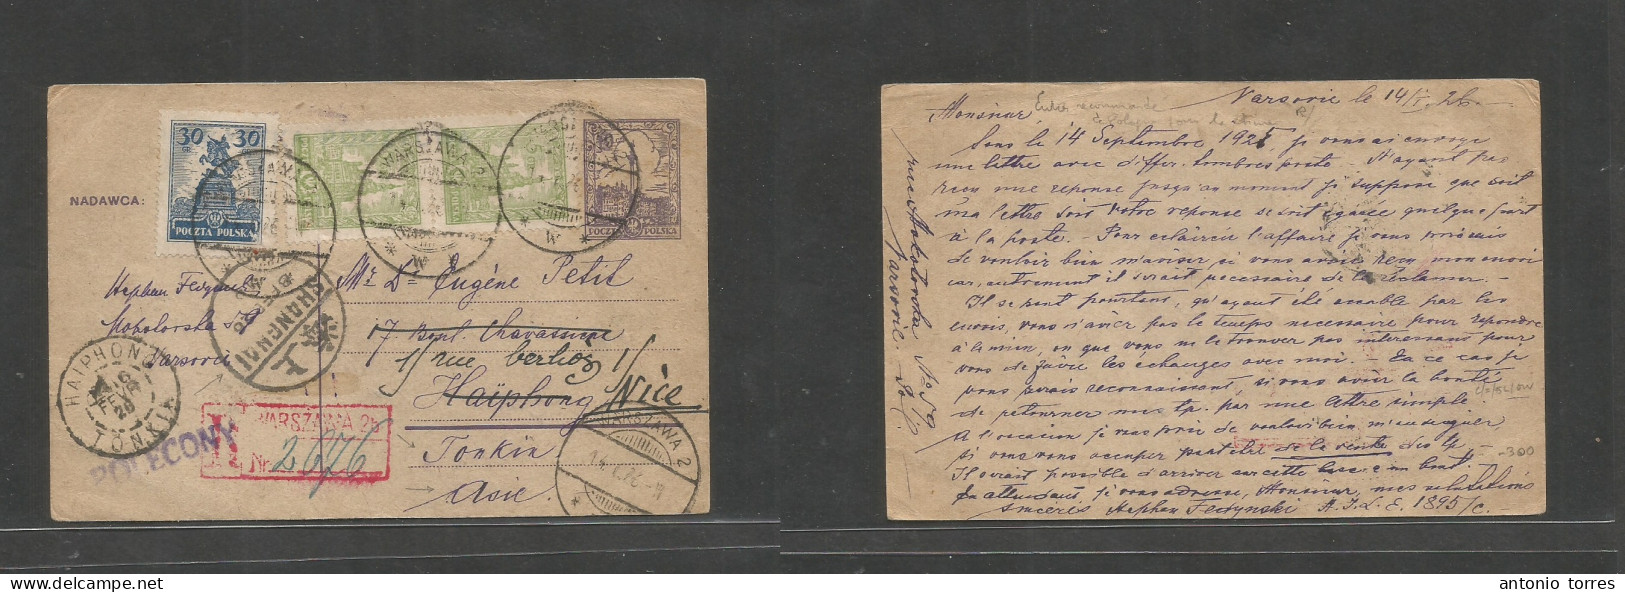 30 30
GR. GR.
POCZTA POLSKA
NADAWCA:
WARSZAWA 2
WARSZAWA 2
* W *
* W *
POCZTA POLSKA
Mr Dr Eugène Petit
7 Boul. Chavassieux
1/ rue berlioz 1/
Haïphong Nice
Tonkin
Asie.
Stephan Fedynski
Mokotowska 59
Varsovie
HAIPHONG
16
FEVR
26
TONKIN
POLECONY
R WARSZAWA 25
Nr. 2676
WARSZAWA 2
14.I.26-4
Varsovie le 14/I. 26.
Monsieur,
Entier recommandé
de Pologne pour le
Sous le 14 Septembre 1925 je vous ai envoyé
une lettre avec differ. timbres poste - N'ayant pas
reçu une réponse jusqu'au moment je suppose que soit
ma lettre soit votre réponse se soit égarée quelque part
à la poste. Pour éclaircir l'affaire je vous
de vouloir bien m'aviser si vous avez reçu mon envoi
car, autrement il serait nécessaire de la réclamer.
Il se peut pourtant, qu'ayant été accablé par les
envois, vous n'aviez pas le temps nécessaire pour répondre
à la mien, ou que vous ne le trouvez pas intéressant pour
vous de faire les échanges avec moi. - En ce cas je
vous serais reconnaissant, si vous aviez la bonté
de retourner mes tp. par une lettre simple
A l'occasion je vous prie de vouloir bien m'
si vous vous occupez peut être de la vente des tp. -
-300
Il serait possible d'arriver sur cette base à un but. -
En attendant, je vous adresse, Monsieur, mes salutations
sincères Stephan Fedynski A.I.L.E. 1895/c. -
rue Mokotowska No 59
Varsovie
antonio torres